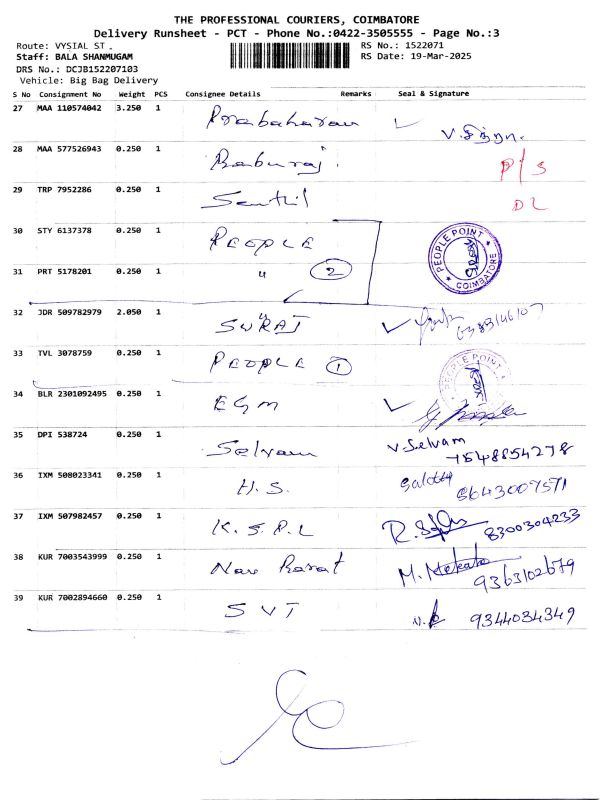 THE PROFESSIONAL COURIERS, COIMBATORE
Delivery Runsheet - PCT - Phone No.:0422-3505555 - Page No.:3
Route: VYSIAL ST . RS No.: 1522071
Staff: BALA SHANMUGAM RS Date: 19-Mar-2025
DRS No.: DCJB152207103
Vehicle: Big Bag Delivery
S No Consignment No Weight PCS Consignee Details Remarks Seal & Signature
27 MAA 110574042 3.250 1 Prabaharan V. சித்ரா.
28 MAA 577526943 0.250 1 Baburaj. P/S
29 TRP 7952286 0.250 1 Senthil DL
30 STY 6137378 0.250 1 PEOPLE PEOPLE POINT COIMBATORE
31 PRT 5178201 0.250 1 " 2
32 JDR 509782979 2.050 1 SURAJ
33 TVL 3078759 0.250 1 PEOPLE 1 PEOPLE POINT
34 BLR 2301092495 0.250 1 EGM
35 DPI 538724 0.250 1 Selvam V. Selvam 7548854278
36 IXM 508023341 0.250 1 H.S. 8643007571
37 IXM 507982457 0.250 1 K.S.P.L 8300304233
38 KUR 7003543999 0.250 1 Nav Barat 9363102679
39 KUR 7002894660 0.250 1 SVT 9344034349